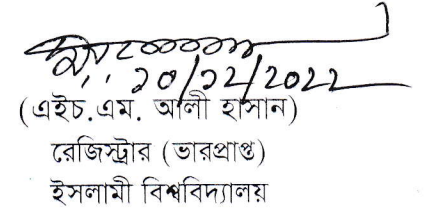 20/12/2022
(এইচ.এম. আলী হাসান)
রেজিস্ট্রার (ভারপ্রাপ্ত)
ইসলামী বিশ্ববিদ্যালয়